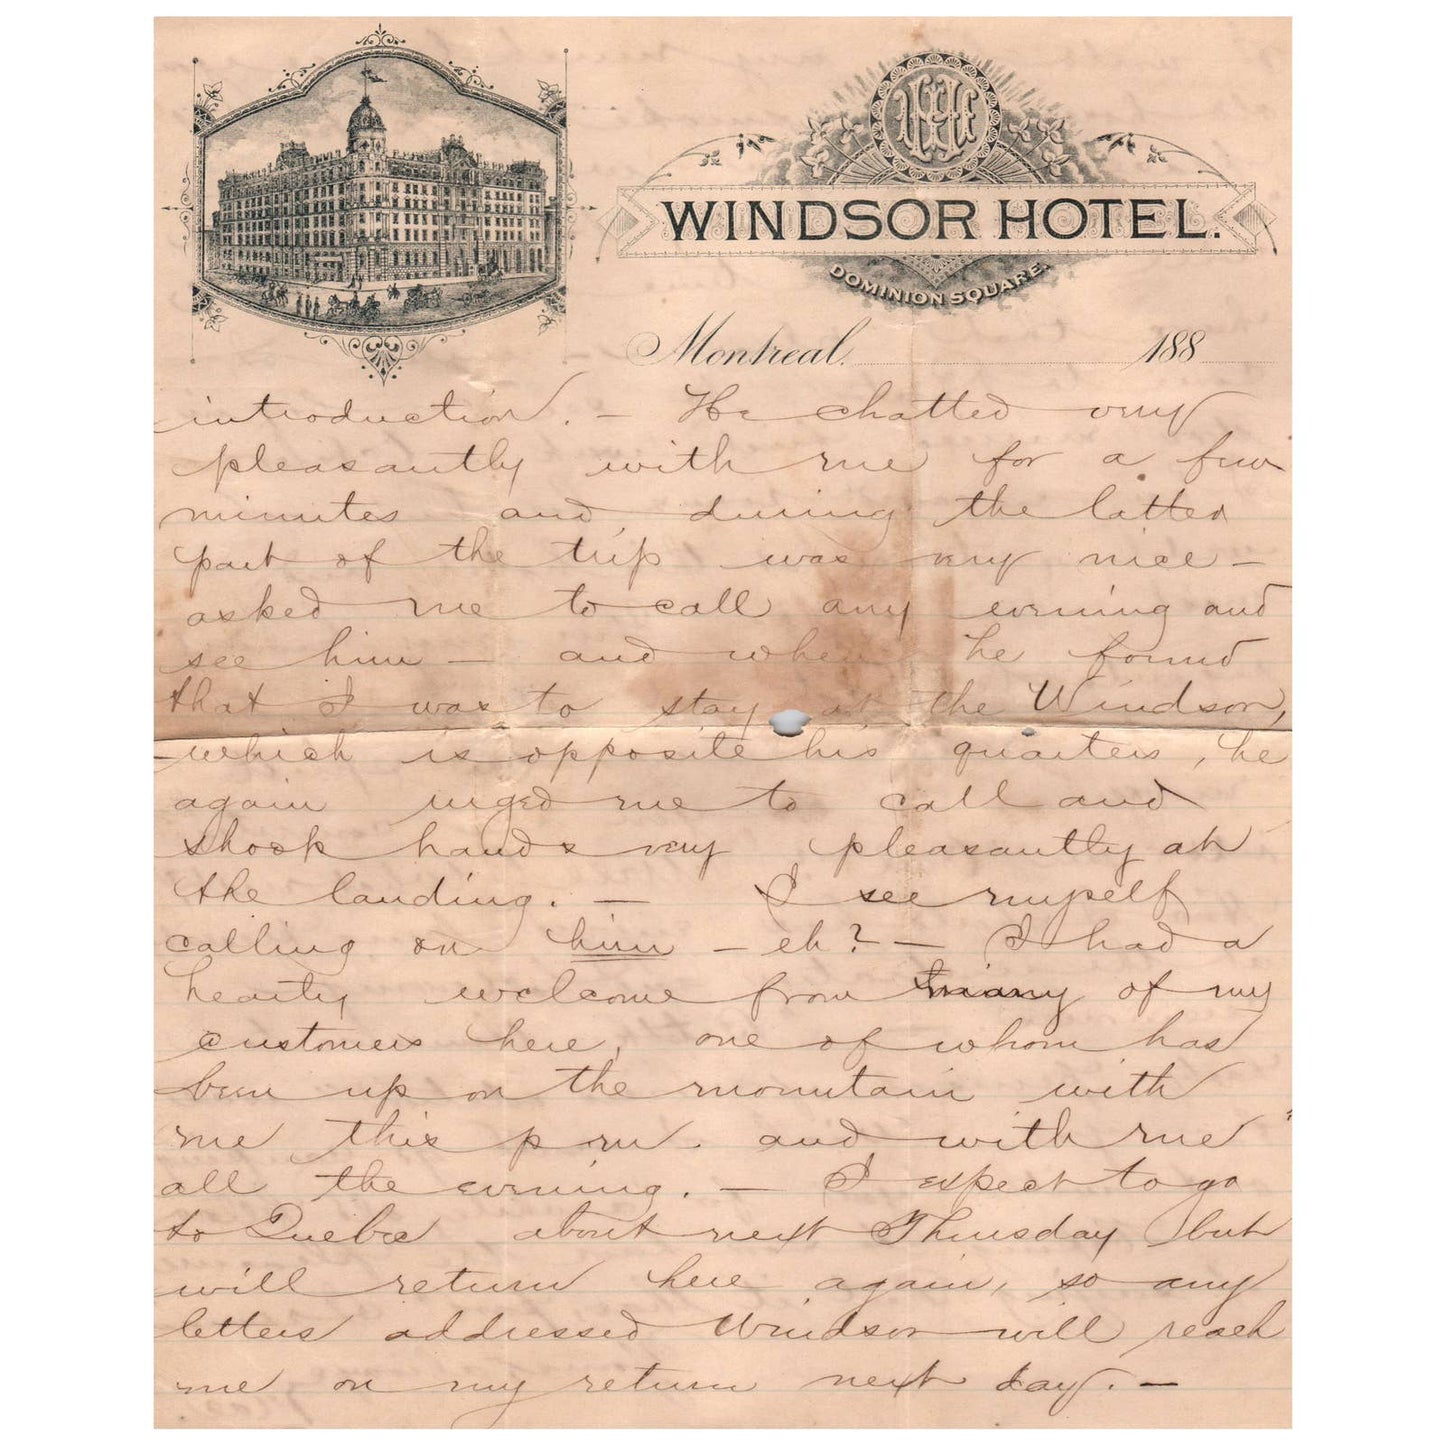 WINDSOR HOTEL.
DOMINION SQUARE.
Montreal. 188
introduction. — He chatted very
pleasantly with me for a few
minutes and, during the latter
part of the trip was very nice —
asked me to call any evening and
see him — and when he found
that I was to stay at the Windsor,
which is opposite his quarters, he
again urged me to call and
shook hands very pleasantly at
the landing. — I see myself
calling on him — eh? — I had a
hearty welcome from many of my
customers here, one of whom has
been up on the mountain with
me this p m. and with me
all the evening. — I expect to go
to Quebec about next Thursday but
will return here again, so any
letters addressed Windsor will reach
me on my return next day. —